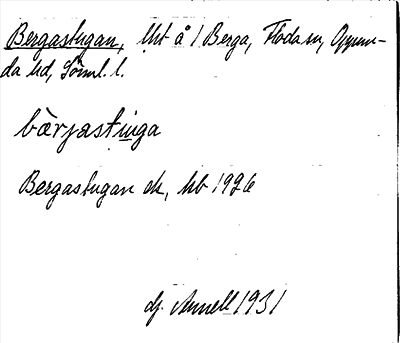 Bergastugan, lht å 1 Berga, Floda sn, Oppun-
da hd, Söml. l.
bärjastinga
Bergastugan ek, kb 1926
dj. Annell 1931